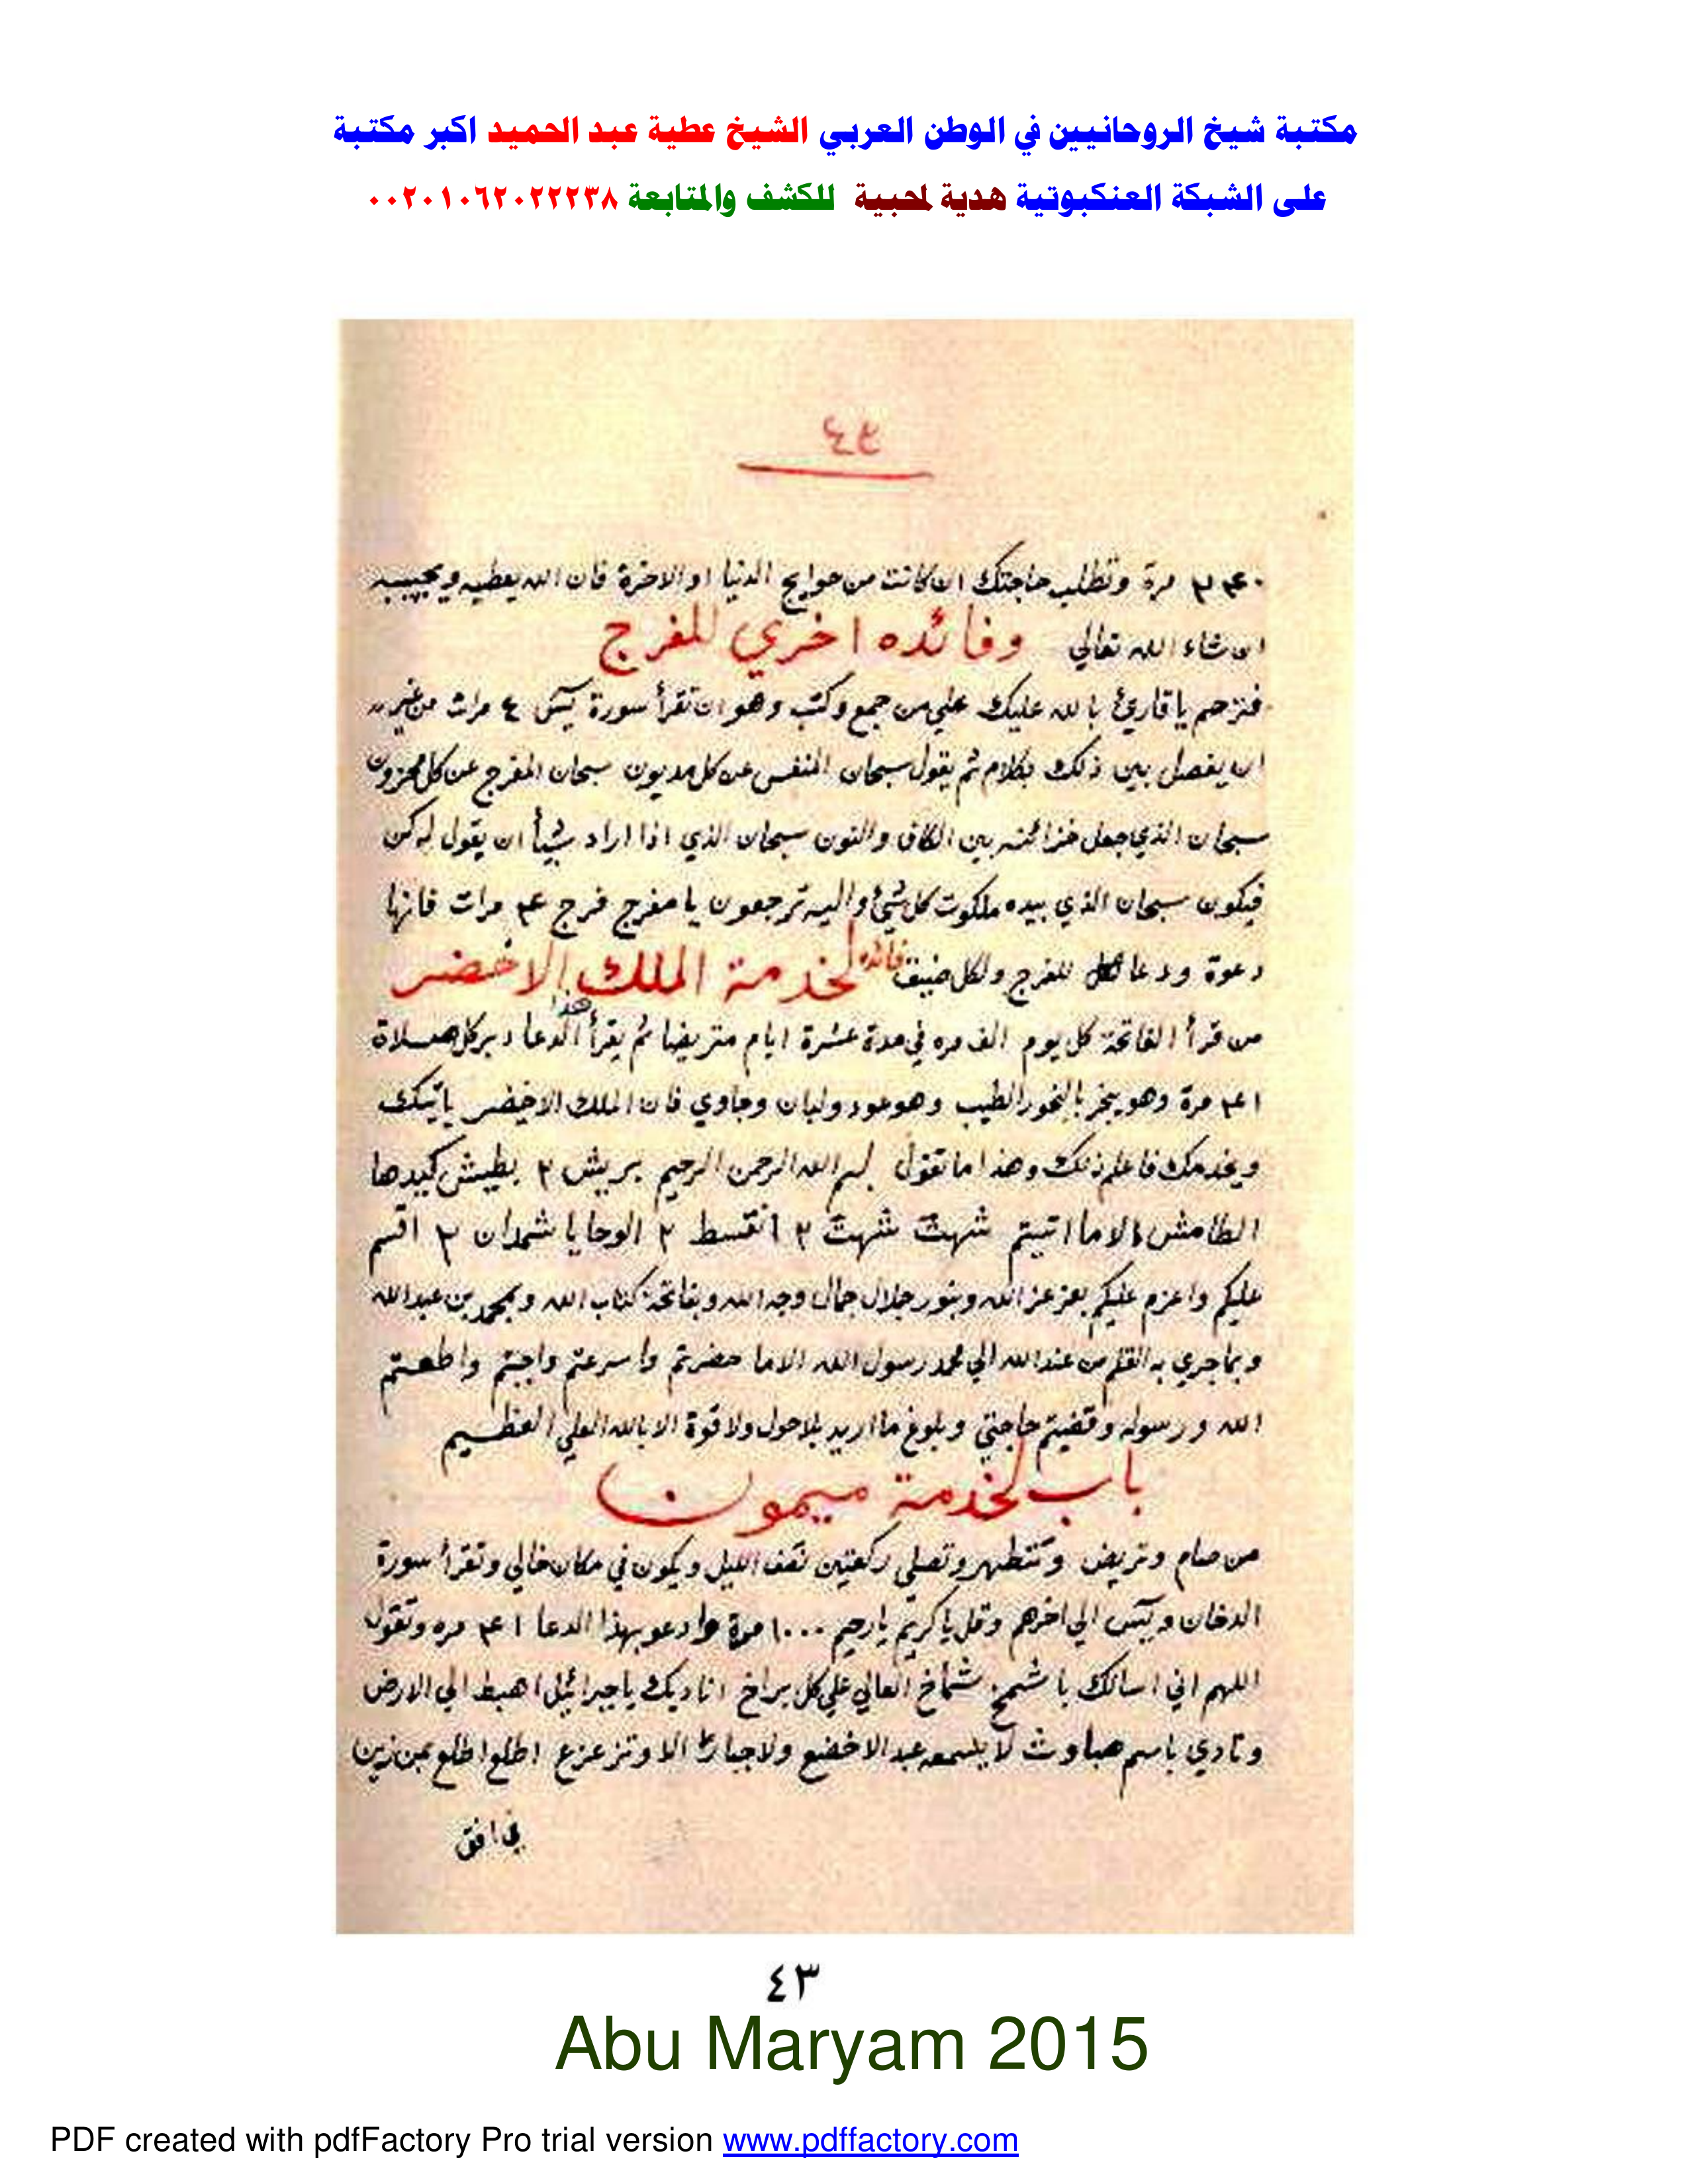 مكتبة شيخ الروحانيين في الوطن العربي الشيخ عطية عبد الحميد اكبر مكتبة
على الشبكة العنكبوتية هدية لمحبية للكشف والمتابعة ٠٠٢٠١٠٦٢٠٢٢٢٣٨
٤٣
مرة وتطلب حاجتك ان كانت من حوايج الدنيا او الاخرة فان الله يعطيه ويجيبه
ان شاء الله تعالي وفائده اخري للفرج
فترحم يا قارئ بالله عليك علي من جمع وكتب وهو ان تقرأ سورة يس ٤ مرات من غير
ان يفصل بين ذلك بكلام ثم يقول سبحان المنفس عن كل مديون سبحان المفرج عن كل محزون
سبحان الذي جعل خزائنه بين الكاف والنون سبحان الذي اذا اراد شيأ ان يقول له كن
فيكون سبحان الذي بيده ملكوت كل شئ واليه ترجعون يا مفرج فرج ٣ مرات فانها
دعوة ودعا للفرج ولكل ضيق فائده لخدمة الملك الاخضر
من قرأ الفاتحة كل يوم الف مره في مدة عشرة ايام متريضا ثم يقرأ هذا الدعا دبر كل صلاة
مرة وهو يبخر بالبخور الطيب وهو عود ولبان وجاوي فان الملك الاخضر يأتيك
ويخدمك فاعلم ذلك وهذا ما تقول بسم الله الرحمن الرحيم بريش ٢ بطيش كيدها
الطامش الا ما اتيتم شهت شهت ٢ انقسط ٢ الوحا يا شمدان ٢ اقسم
عليكم واعزم عليكم بعز عز الله وبنور جلال جمال وجه الله وبفاتحة كتاب الله وبمحمد بن عبد الله
وبما جري به القلم من عند الله الي محمد رسول الله الا ما حضرتم واسرعتم واجبتم واطعتم
الله ورسوله وقضيتم حاجتي وبلوغ ما اريد بلا حول ولا قوة الا بالله العلي العظيم
باب لخدمة ميمون
من صام وتريض وتتطهر وتصلي ركعتين نصف الليل ويكون في مكان خالي وتقرأ سورة
الدخان ويس الي اخرهم وقل يا كريم يا رحيم ١٠٠٠ مرة وادعو بهذا الدعا مره وتقول
اللهم اني اسالك يا شمخ شماخ العالي علي كل براخ اناديك يا جبرائيل اهبط الي الارض
ونادي باسم صباوث لا يسمعه عبد الا خضع ولا جبار الا وتزعزع اطلع اطلع بمن زين
في افق
٤٣
Abu Maryam 2015
PDF created with pdfFactory Pro trial version www.pdffactory.com